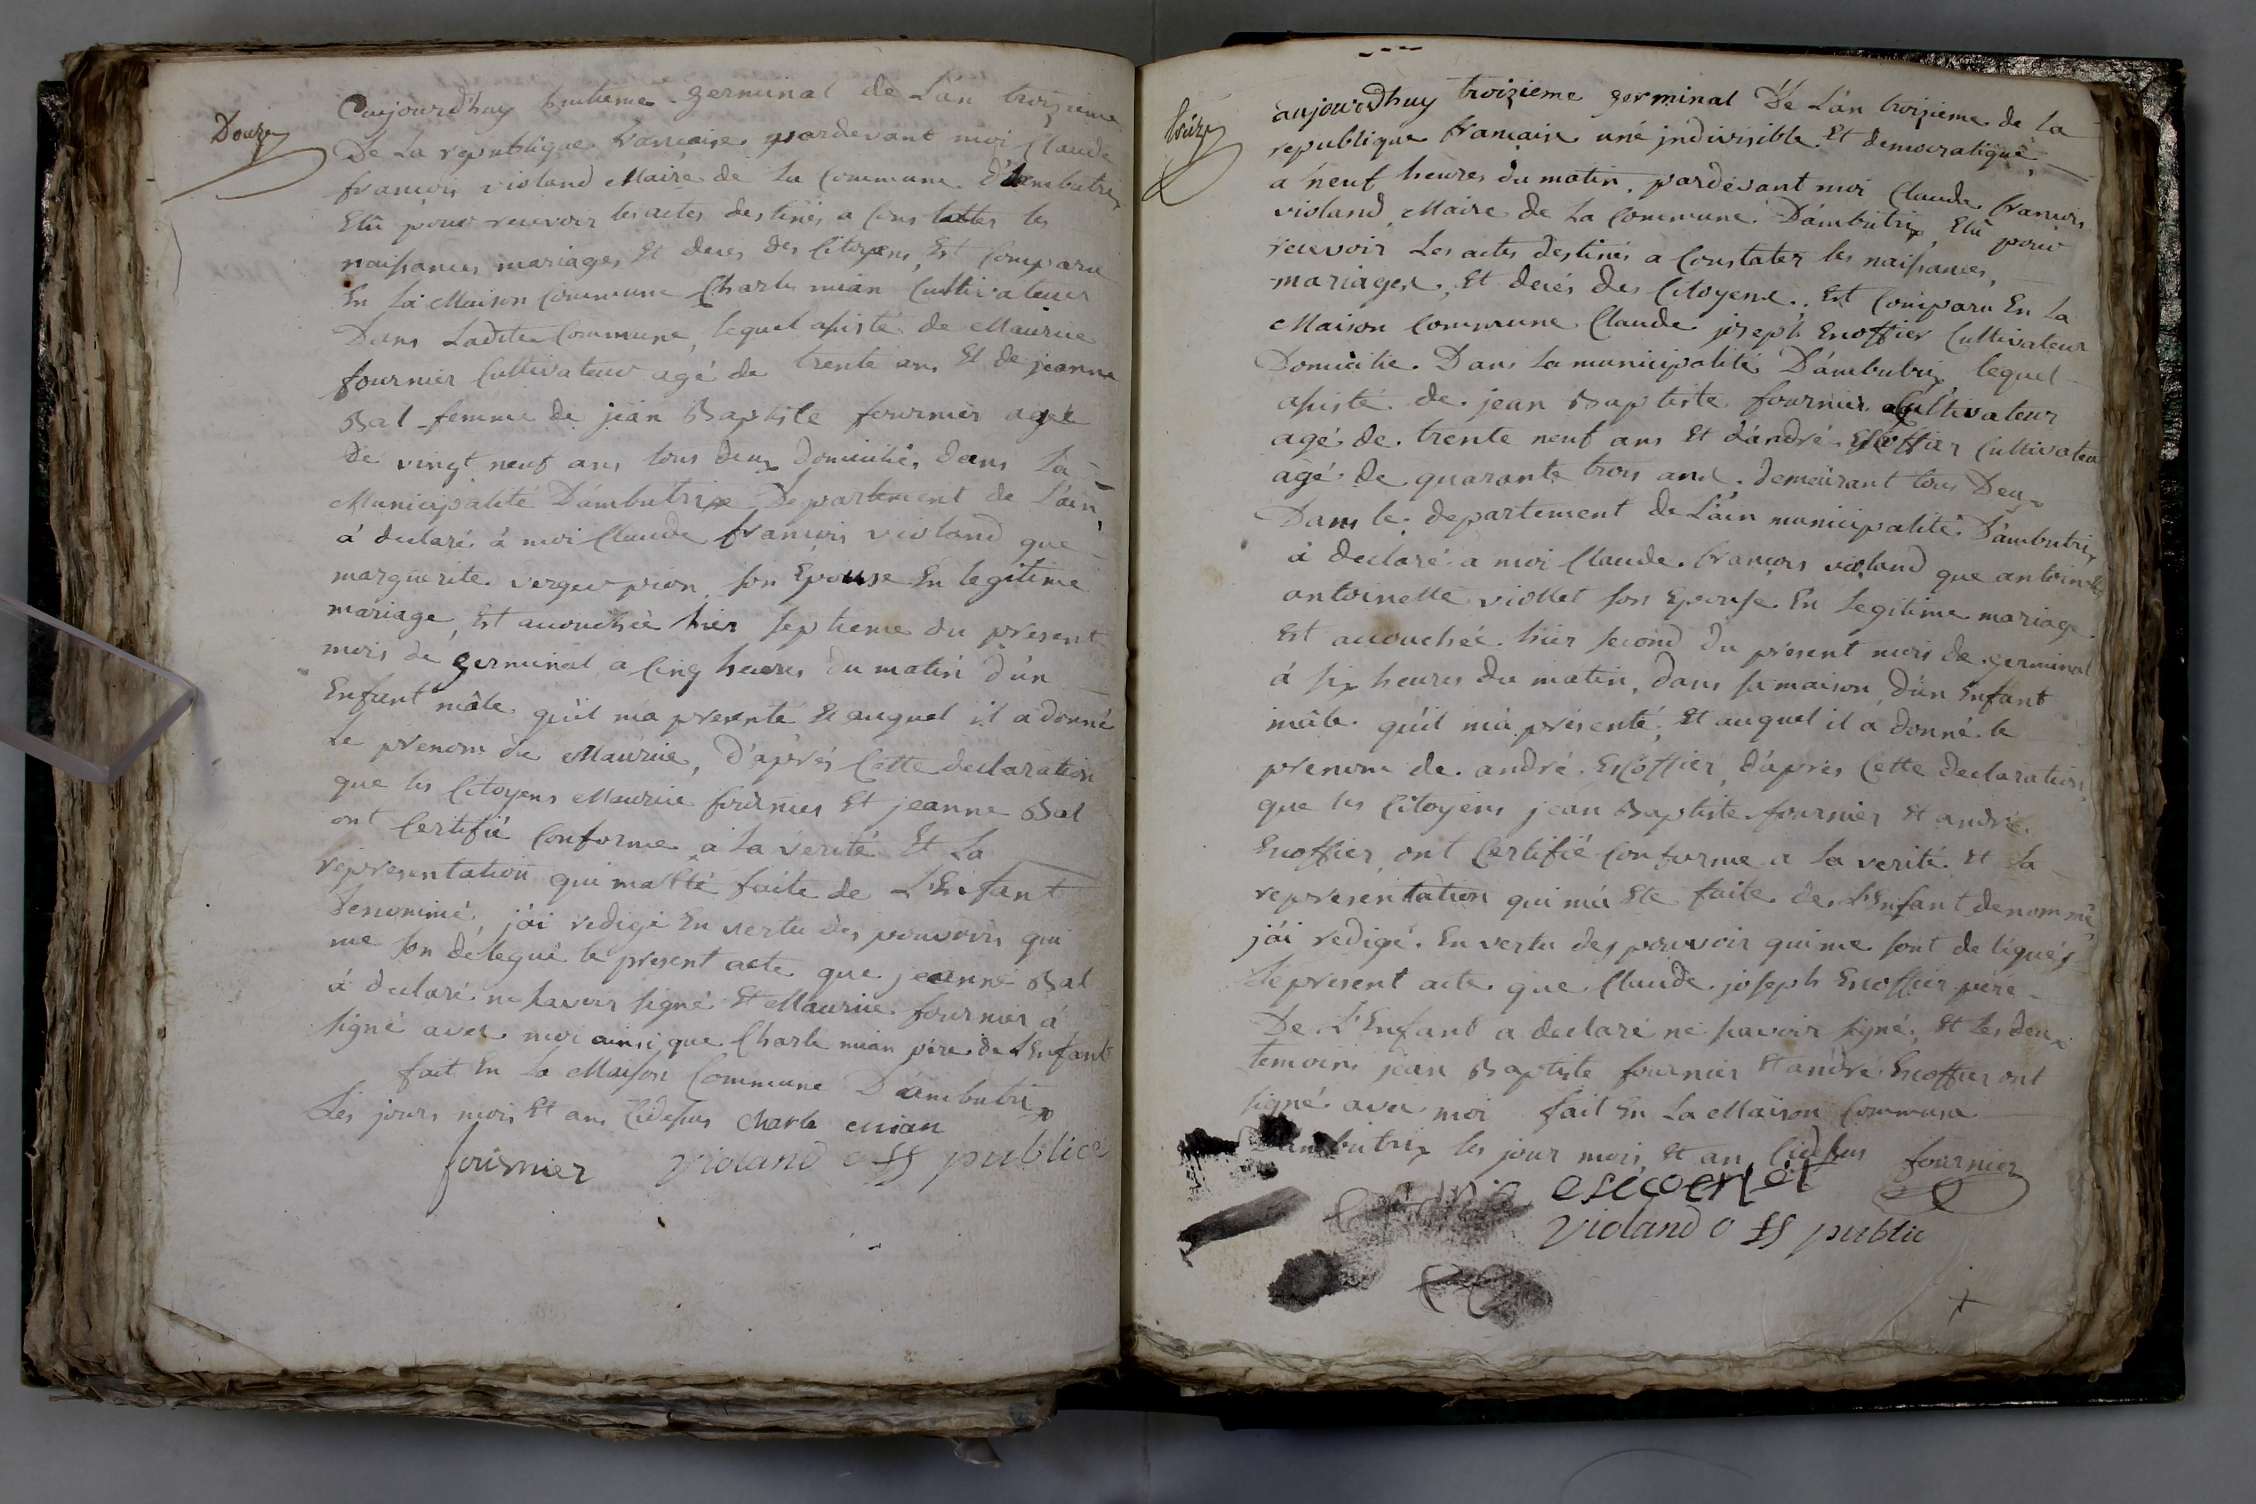 Douze
aujourd'huy huitieme germinal de L'an troizieme
De La republique francaise pardevant moi Claude
françois violand Maire de la Commune d'ambutrix
Elû pour recevoir les actes destinés a Constatter les
naissances mariages Et deces des Citoyens, Est Comparu
En la Maison Commune Charles mian Cultivateur
Dans Ladite Commune, lequel assisté de Maurice
fournier Cultivateur agé de trente ans Et de jeanne
Bal femme de jean Baptiste fournier agée
De vingt neuf ans tous deux domiciliés dans la
Municipalité D'ambutrix Departement de L'ain,
à declaré à moi Claude françois violand que
marguerite vergeu pion son Epouse En legitime
mariage, Est accouchée hier septieme du present
mois de germinal a Cinq heures du matin d'un
Enfant mâle qu'il m'a presenté Et auquel il a donné
Le prenom de Maurice, D'après Cette declaration
que les Citoyens Maurice fournier Et jeanne Bal
ont Certifié Conforme à la verité Et la
representation qui m'a Eté faite de L'Enfant
denommé, j'ai redigé En vertu des pouvoirs qui
me son delegué le present acte que jeanne Bal
à declaré ne savoir signé Et Maurice fournier à
signé avec moi ainsi que Charle mian père de L'Enfant
fait En La Maison Commune D'ambutrix
Les jours mois Et ans Cidessus Charle mian
fournier violand off public
treize
aujourdhuy troizieme germinal De L'an troizieme de la
republique francaise une indivisible Et democratique,
a neuf heures du matin. pardevant moi Claude françois
violand, Maire de La Commune D'ambutrix, Elû pour
recevoir Les actes destinés a Constater les naissances,
mariages, Et decés des Citoyens. Est Comparu En La
Maison Commune Claude joseph Escoffier Cultivateur
Domicilie. Dans la municipalité D'ambutrix lequel
assisté de jean Baptiste fournier Cultivateur
agé de trente neuf ans Et d'andré Escoffier Cultivateur
agé de quarante trois ans. demeurant tous Deux
Dans le departement de L'ain municipalité D'ambutrix
à declaré a moi Claude françois violand que
antoinette viollet son Epouse En Legitime mariage
Est accouchée hier second du present mois de germinal
à six heures du matin, dans sa maison, d'un Enfant
mâle qu'il m'à présenté, Et auquel il à donné le
prenom de andré Escoffier, d'après Cette declaration,
que les Citoyens jean Baptiste fournier Et andré
Escoffier ont Certifié Conforme a la verité Et la
representation qui m'à Eté faite de L'Enfant denommé,
j'ai redigé En vertu des pouvoir qui me sont delégués
Le present acte que Claude joseph Escoffier père
De L'Enfant a declaré ne savoir signé, Et Les deux
temoins jean Baptiste fournier Et andré Escoffier ont
signé avec moi fait En La Maison Commune
D'ambutrix les jour mois Et an Cidessus fournier
violand off public